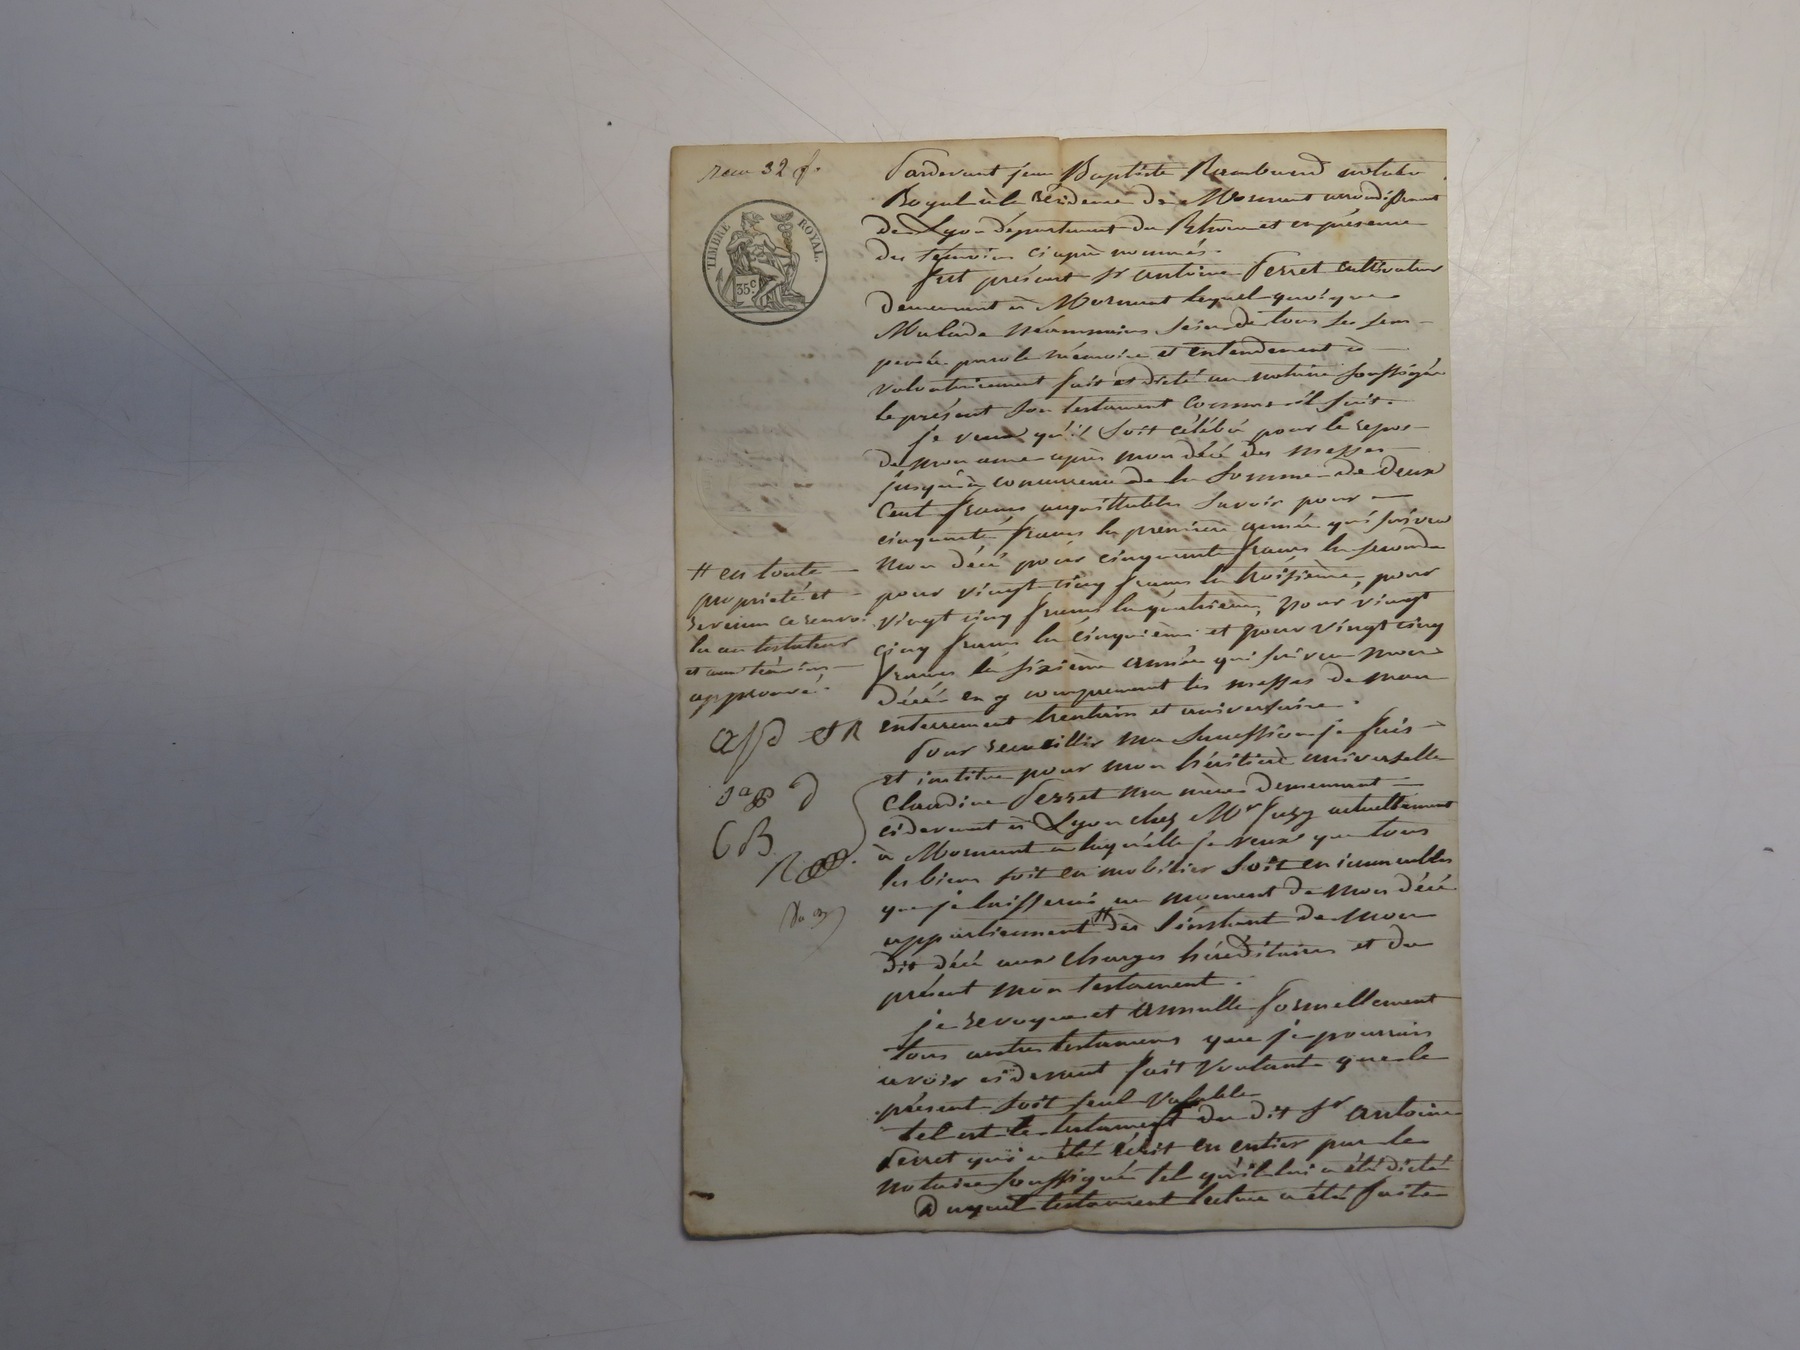 32 f.
TIMBRE ROYAL.
35 c
Pardevant jean Baptiste Rambaud notaire
Royal à la résidence de Mornant arrondissement
de Lyon département du Rhone et en présence
des témoins ci après nommés.
fut présent Sr antoine Ferret cultivateur
demeurant à Mornant lequel quoique
Malade néanmoins sain de tous ses sens
pensée parole mémoire et entendement à
volontairement fait et dicté au notaire soussigné
le présent son testament comme il suit.
je veux qu'il soit célébré pour le repos
de mon ame après mon décé des messes
jusqu'à concurrence de la somme de deux
Cent francs acquittables savoir pour
cinquante francs la première année qui suivra
mon décé pour cinquante francs la seconde
pour vingt-cinq francs la troisième, pour
vingt cinq francs la quatrième, pour vingt
cinq francs la cinquième et pour vingt cinq
francs la sixième année qui suivra mon
décé en y comprenant les messes de mon
enterrement trentain et aniversaire.
Pour recueillir ma succession je fais
et institue pour mon héritière universelle
Claudine Ferret ma mère demeurant
cidevant à Lyon chez Mr actuellement
à Mornant a laquelle je veux que tous
les biens soit en mobilier soit en immeubles
que je laisserai au moment de mon décé
appartiennent # dès l'instant de mon
dit décé aux charges héréditaires et du
présent mon testament.
je revoque et annulle formellement
tous autres testaments que je pourrais
avoir cidevant fait voulant que le
présent soit seul valable
tel est le testament du dit Sr antoine
Ferret qui a été écrit en entier par le
notaire soussigné tel qu'il lui a été dicté
Duquel testament lecture a été faite
# en toute
propriété et
revenu ce renvoi
lu au testateur
et aux témoins
approuvé.
CB